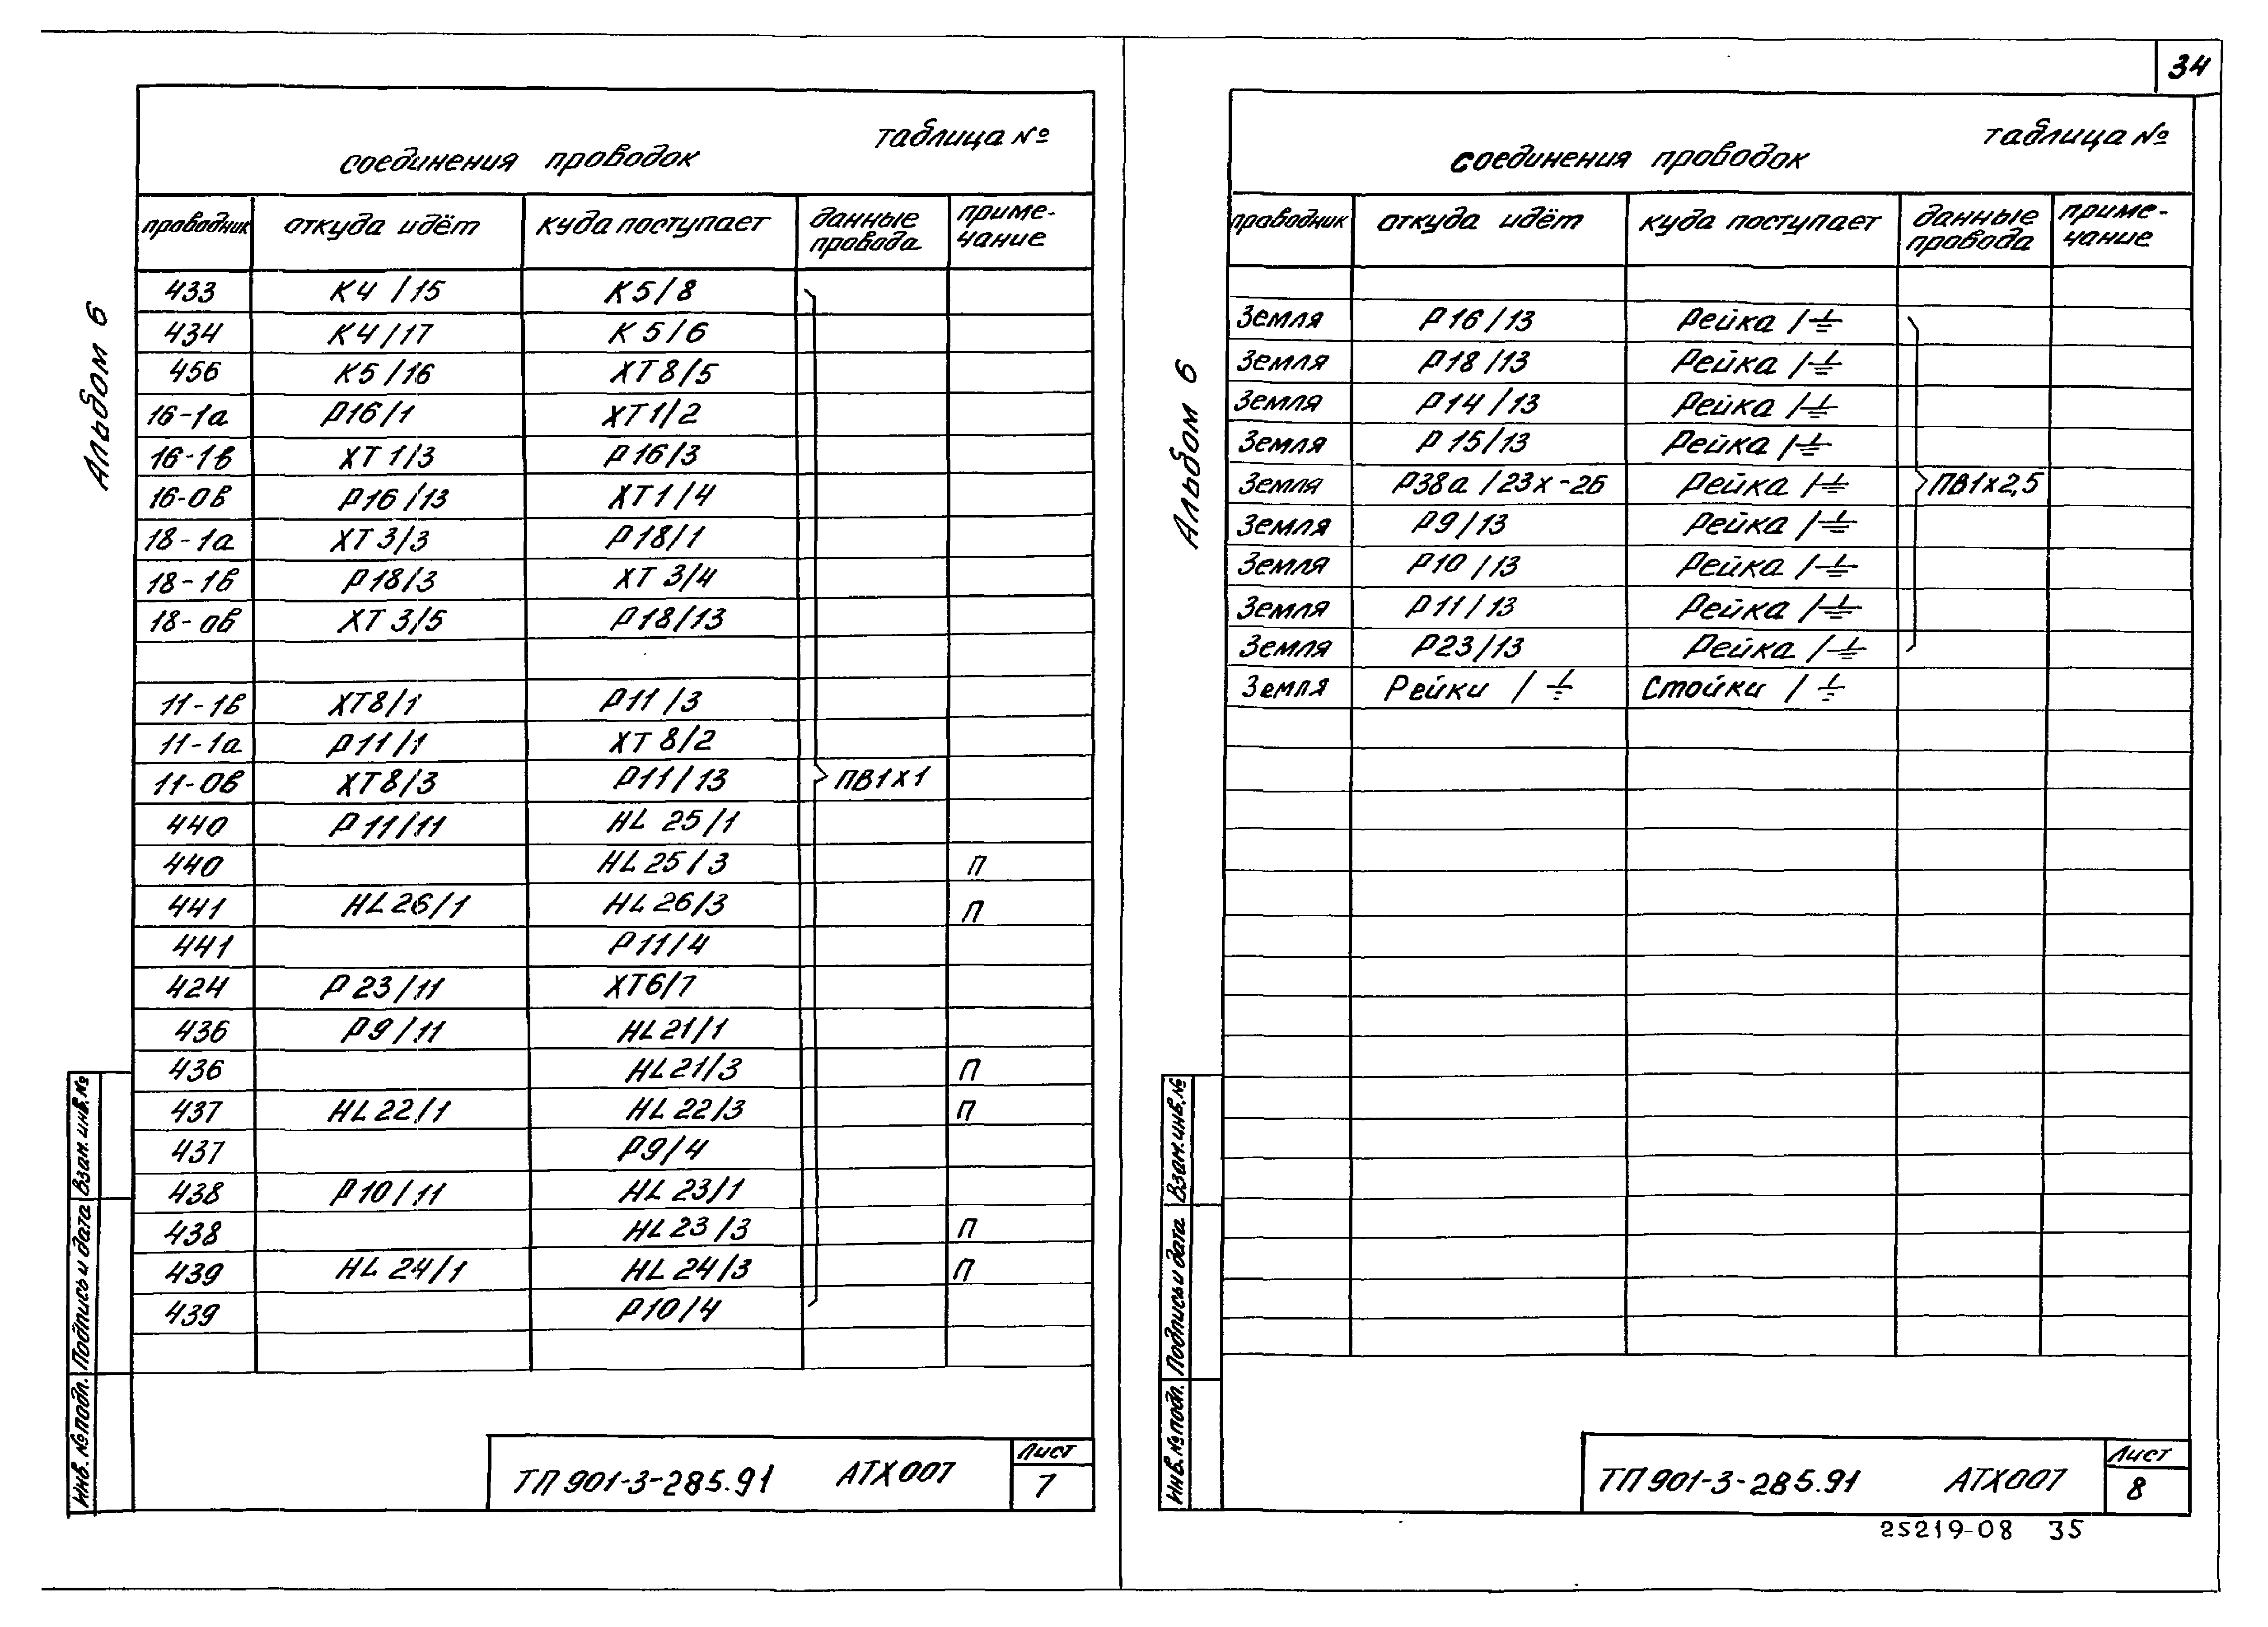 34
Альбом 6
таблица №
соединения проводок
проводник откуда идёт куда поступает данные провода приме-чание
433 К4/15 К5/8
434 К4/17 К5/6
456 К5/16 ХТ8/5
16-1а Р16/1 ХТ1/2
16-1в ХТ1/3 Р16/3
16-0в Р16/13 ХТ1/4
18-1а ХТ3/3 Р18/1
18-1в Р18/3 ХТ3/4
18-0в ХТ3/5 Р18/13
11-1в ХТ8/1 Р11/3
11-1а Р11/1 ХТ8/2
11-0в ХТ8/3 Р11/13 ПВ1х1
440 Р11/11 HL25/1
440 HL25/3 П
441 HL26/1 HL26/3 П
441 Р11/4
424 Р23/11 ХТ6/7
436 Р9/11 HL21/1
436 HL21/3 П
437 HL22/1 HL22/3 П
437 Р9/4
438 Р10/11 HL23/1
438 HL23/3 П
439 HL24/1 HL24/3 П
439 Р10/4
Инв. № подл. Подпись и дата Взам. инв. №
ТП 901-3-285.91 АТХ007 Лист 7
Альбом 6
таблица №
соединения проводок
проводник откуда идёт куда поступает данные провода приме-чание
Земля Р16/13 Рейка /⏚
Земля Р18/13 Рейка /⏚
Земля Р14/13 Рейка /⏚
Земля Р15/13 Рейка /⏚
Земля Р38а/23х-2б Рейка /⏚ ПВ1х2,5
Земля Р9/13 Рейка /⏚
Земля Р10/13 Рейка /⏚
Земля Р11/13 Рейка /⏚
Земля Р23/13 Рейка /⏚
Земля Рейки /⏚ Стойки /⏚
Инв. № подл. Подпись и дата Взам. инв. №
ТП 901-3-285.91 АТХ007 Лист 8
25219-08 35